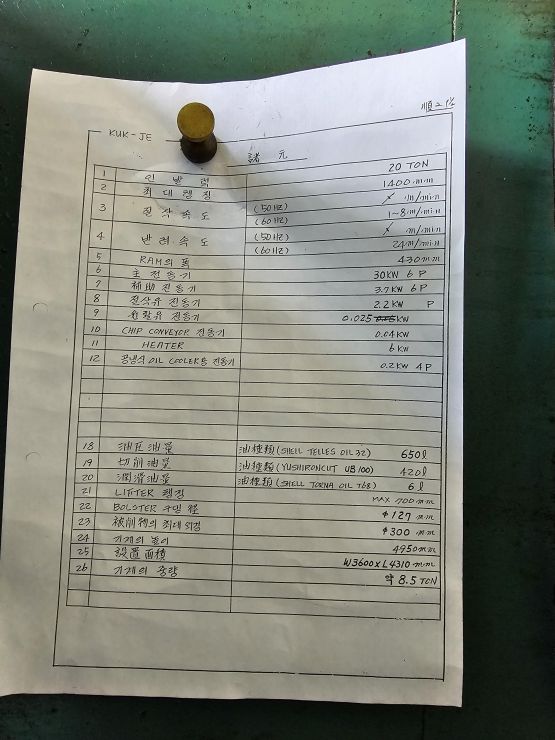 KUK-JE
諸 元
1 인 발 력 20 TON
2 최 대 행 정 1400 mm
3 절 삭 속 도 (50HZ) m/min
(60HZ) 1~8 m/min
4 반 려 속 도 (50HZ) m/min
(60HZ) 24 m/min
5 RAM의 폭 430 mm
6 主 전동기 30KW 6P
7 補助 전동기 3.7KW 6P
8 절삭유 전동기 2.2KW P
9 윤활유 전동기 0.025 KW
10 CHIP CONVEYOR 전동기 0.04KW
11 HEATER 6KW
12 공냉식 OIL COOLER용 전동기 0.2KW 4P
18 油圧油量 油種類(SHELL TELLES OIL 32) 650ℓ
19 切削油量 油種類(YUSHIRONCUT UB100) 420ℓ
20 潤滑油量 油種類(SHELL TORNA OIL T68) 6ℓ
21 LIFTER 행정 MAX 700 mm
22 BOLSTER 구멍 徑 φ127 mm
23 被削物의 최대 직경 φ300 mm
24 기계의 높이 4950 mm
25 設置面積 W3600×L4310 mm
26 기계의 중량 약 8.5 TON